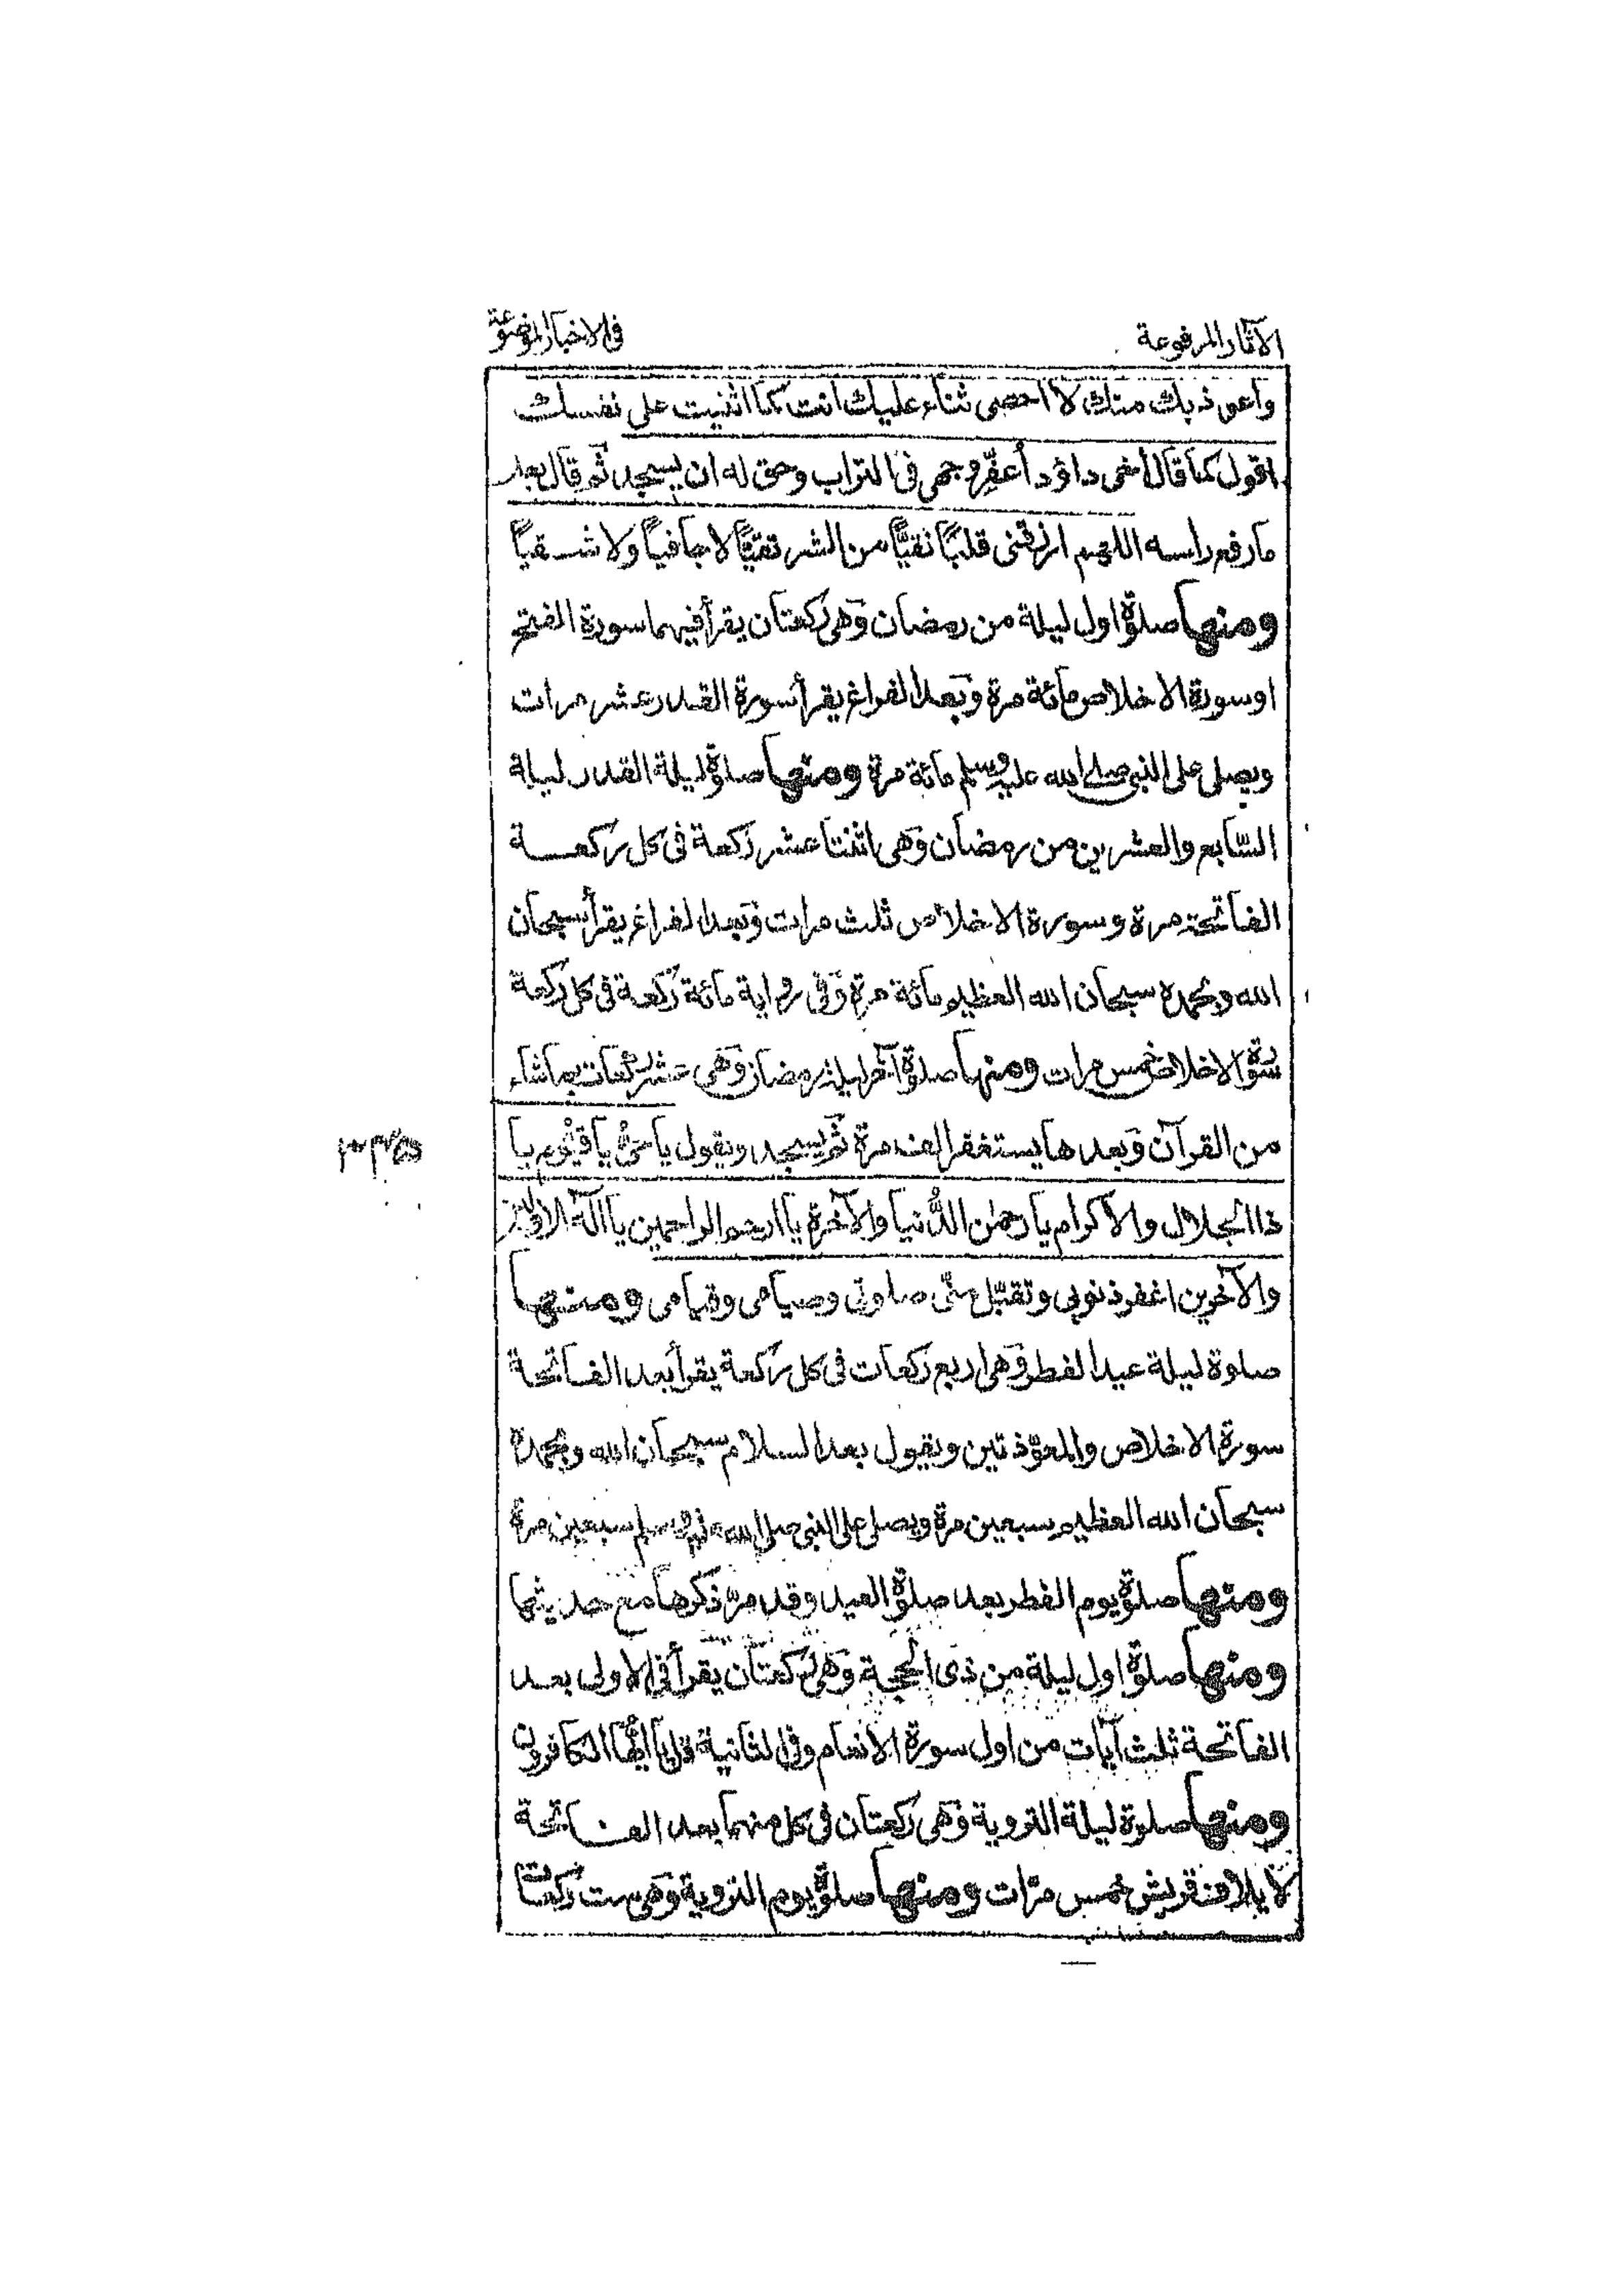 الآثار المرفوعة
فى الاخبار الموضوعة
واعوذ بك منك لا احصى ثناء عليك انت كما اثنيت على نفسك
اقول كما قال أخى داؤد أعفّر وجهى فى التراب وحق له ان يسجد ثم قال بعد
ما رفع راسه اللهم ارزقنى قلبًا نقيًّا من الشر تقيًّا لا جافيًا ولا شقيًا
ومنها صلوة اول ليلة من رمضان وهى ركعتان يقرأ فيهما سورة الفتح
او سورة الاخلاص مائة مرة وبعد الفراغ يقرأ سورة القدر عشر مرات
ويصلى على النبى صلى الله عليه وسلم مائة مرة ومنها صلوة ليلة القدر ليلة
السّابع والعشرين من رمضان وهى اثنتا عشر ركعة فى كل ركعة
الفاتحة مرة وسورة الاخلاص ثلث مرات وبعد الفراغ يقرأ سبحان
الله وبحمده سبحان الله العظيم مائة مرة وفى رواية مائة ركعة فى كل ركعة
سورة الاخلاص خمس مرات ومنها صلوة آخر ليلة رمضان وهى عشر ركعات بما شاء
من القرآن وبعدها يستغفر الف مرة ثم يسجد ويقول يا حىّ يا قيّوم يا
ذا الجلال والاكرام يا رحمٰن الدُّنيا والآخرة يا ارحم الراحمين يا اله الاولين
والآخرين اغفر ذنوبى وتقبّل منّى صلوتى وصيامى وقيامى ومنها
صلوة ليلة عيد الفطر وهى اربع ركعات فى كل ركعة يقرأ بعد الفاتحة
سورة الاخلاص والمعوّذتين ويقول بعد السلام سبحان الله وبحمده
سبحان الله العظيم سبعين مرة ويصلى على النبى صلى الله عليه وسلم سبعين مرة
ومنها صلوة يوم الفطر بعد صلوة العيد وقد مرّ ذكرها مع حديثها
ومنها صلوة اول ليلة من ذى الحجة وهى ركعتان يقرأ فى الاولى بعد
الفاتحة ثلث آيات من اول سورة الانعام وفى الثانية قل يا أيّها الكافرون
ومنها صلوة ليلة التروية وهى ركعتان فى كل منهما بعد الفاتحة
لايلاف قريش خمس مرّات ومنها صلوة يوم التروية وهى ست ركعات